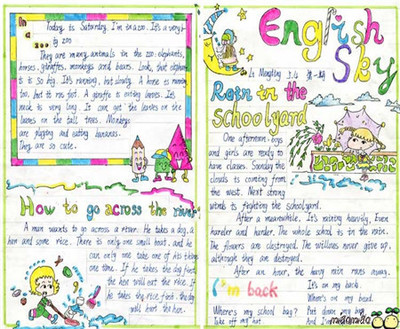 In
a zoo
Today is Saturday. I'm in a zoo. It's a very
big zoo
They are many animals in the zoo: elephants,
horses, giraffes, monkeys and bears. Look, that elephant
is so big. It's running, but slowly. A horse is running
too, but it runs fast. A giraffe is eating leaves. It's
neck is very long. It can get the leaves on the
leaves on the tall trees. Monkeys
are playing and eating bananas.
They are so cute.
How to go across the river
A man wants to go across a river. He takes a dog, a
hen and some rice. There is only one small boat, and he
can only take one of his things
one time. If he takes the dog first,
the hen will eat the rice. If
he takes the rice, the dog
will hurt the hen.
English
Sky
Rain in the
schoolyard
One afternoon, boys
and girls are ready to
have classes. Suddenly the
clouds is coming from
the west. Next strong
winds is fighting the schoolyard.
After a meanwhile. It's raining heavily. Even
harder and harder. The whole school is in the rain.
The flowers are destroyed. The willows never give up,
although they are destroyed.
After an hour, the heavy rain runs away.
I'm back
Where's my school bag?
Take off my hat.
It's on my back.
Where's on my head.
Put down my bag
And